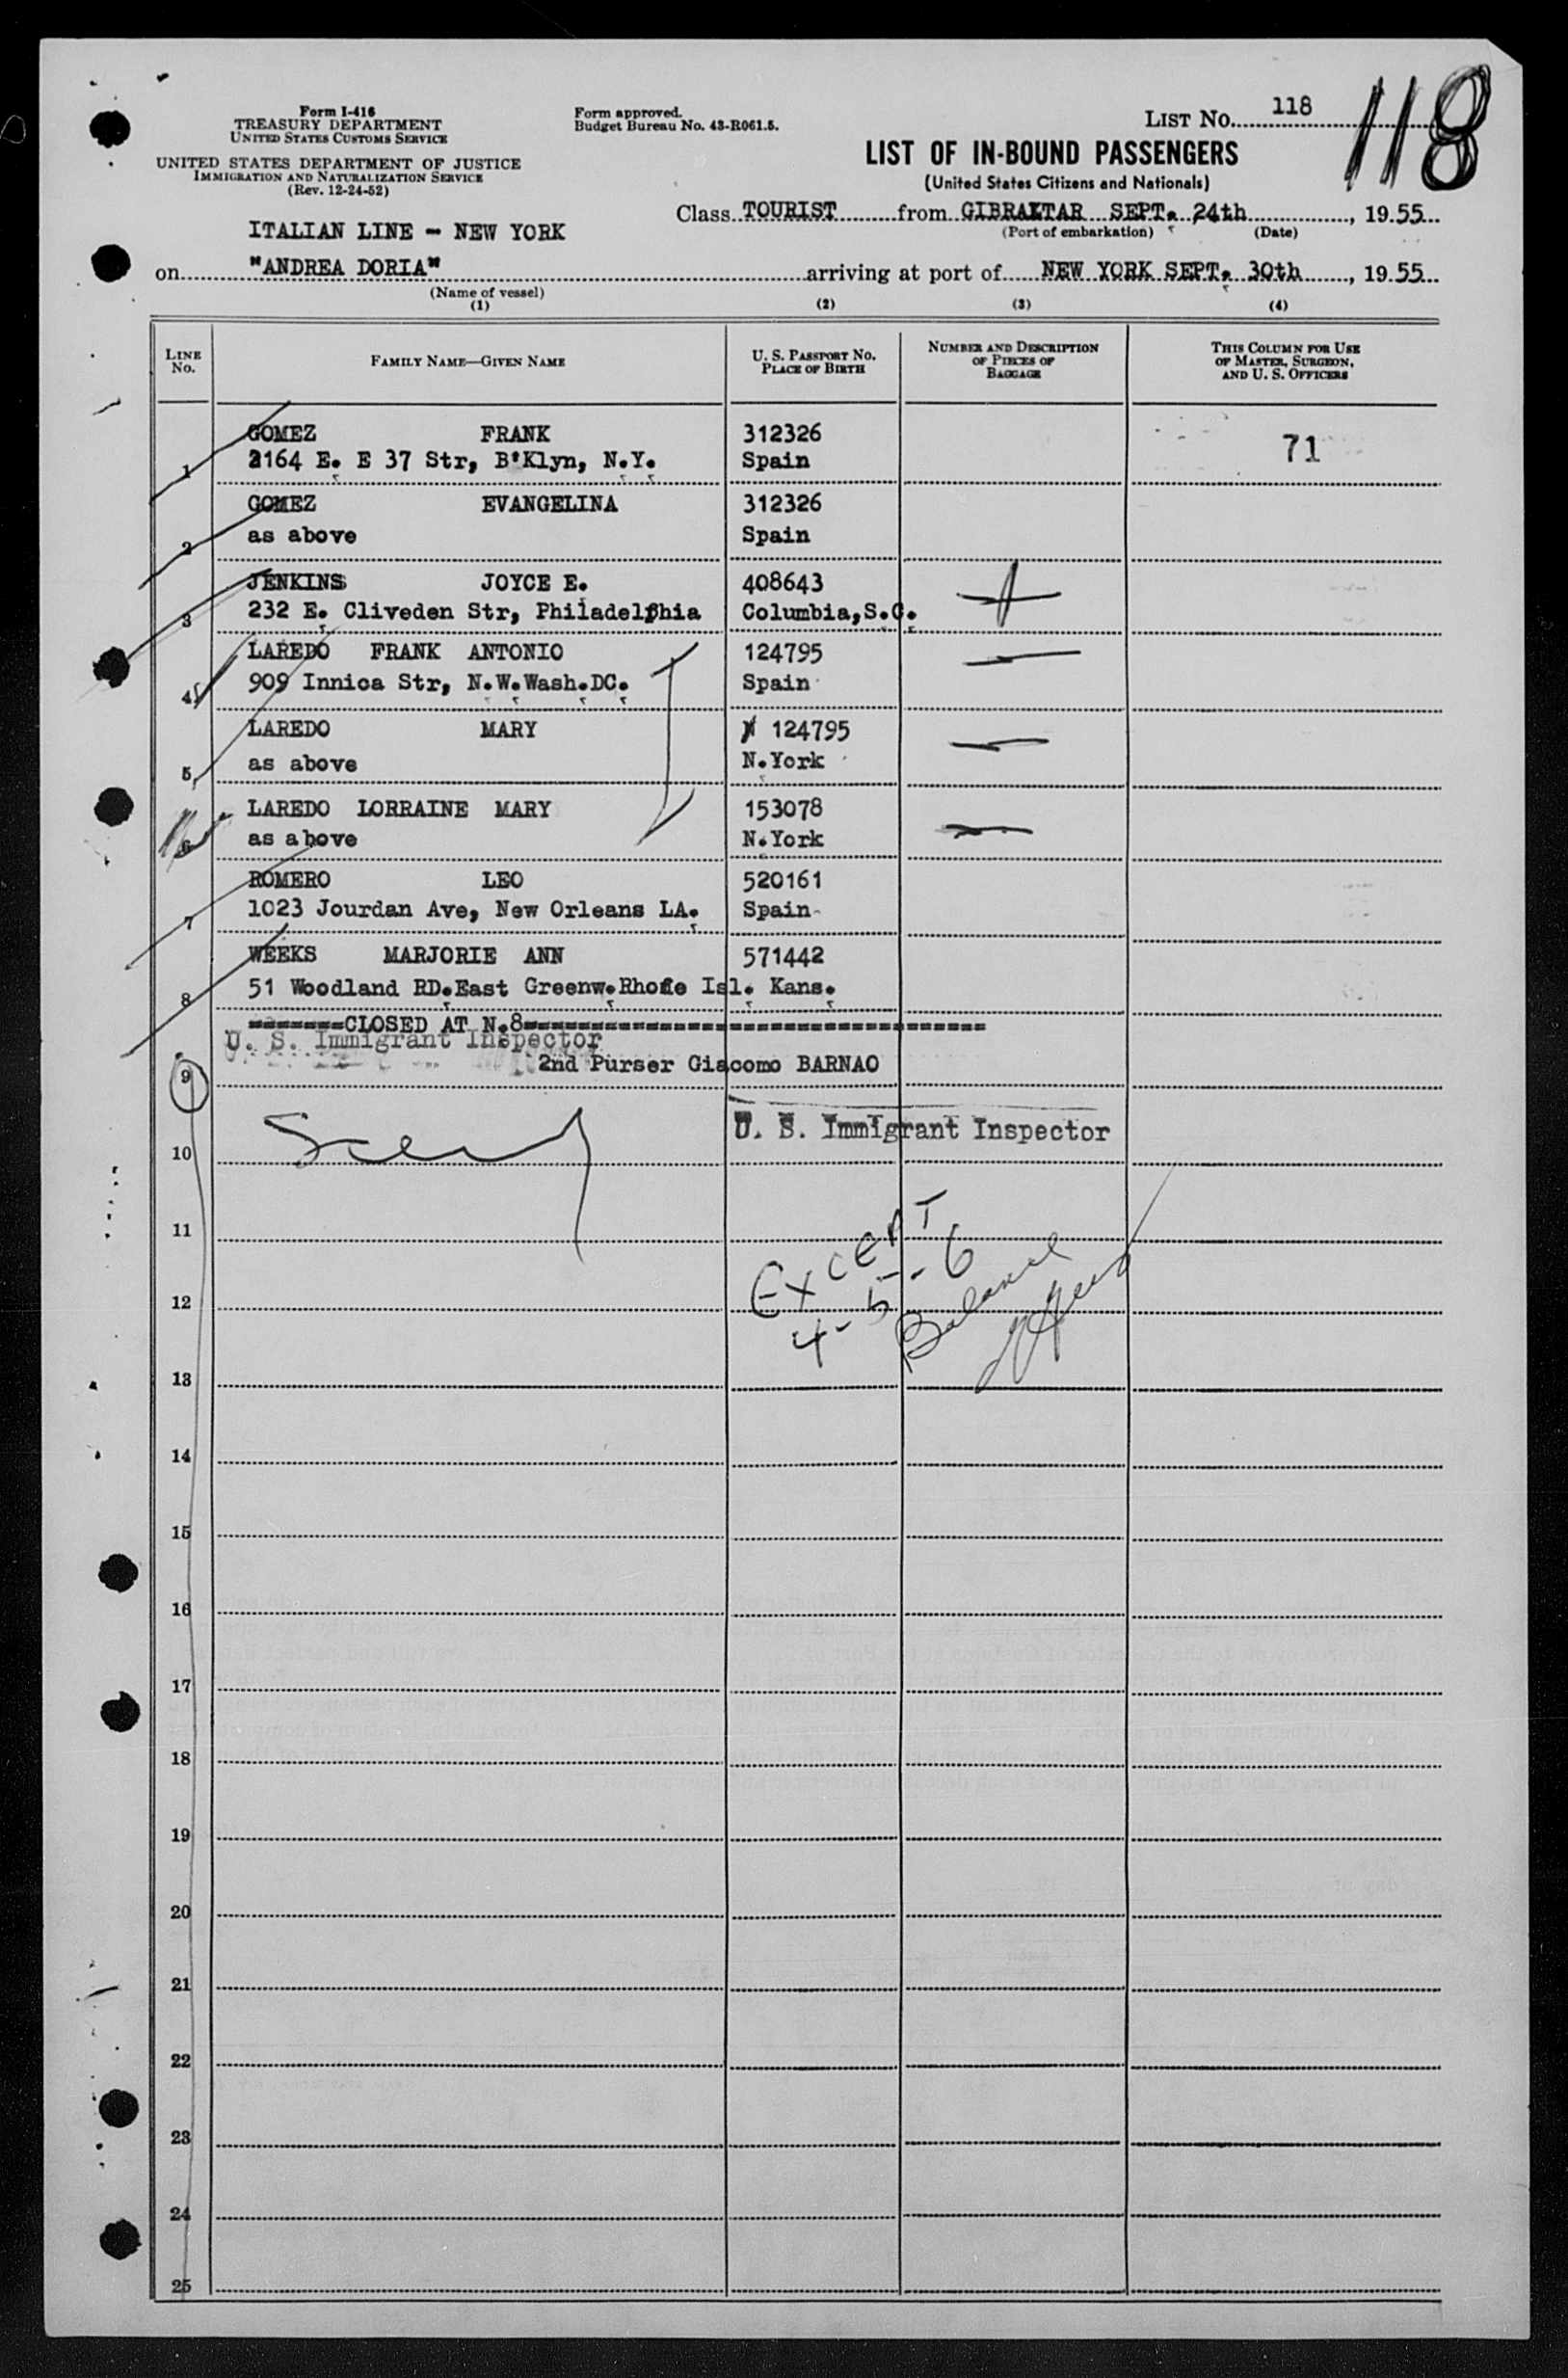 Form I-416
TREASURY DEPARTMENT
UNITED STATES CUSTOMS SERVICE
UNITED STATES DEPARTMENT OF JUSTICE
IMMIGRATION AND NATURALIZATION SERVICE
(Rev. 12-24-52)
Form approved.
Budget Bureau No. 43-R061.5.
LIST NO. 118
118
LIST OF IN-BOUND PASSENGERS
(United States Citizens and Nationals)
Class TOURIST from GIBRALTAR SEPT. 24th, 1955
(Port of embarkation) (Date)
ITALIAN LINE - NEW YORK
on "ANDREA DORIA" arriving at port of NEW YORK SEPT. 30th, 1955
(Name of vessel)
(1) (2) (3) (4)
LINE NO.
FAMILY NAME—GIVEN NAME
U. S. PASSPORT NO.
PLACE OF BIRTH
NUMBER AND DESCRIPTION
OF PIECES OF
BAGGAGE
THIS COLUMN FOR USE
OF MASTER, SURGEON,
AND U. S. OFFICERS
GOMEZ FRANK 312326
1 2164 E. E 37 Str, B'Klyn, N.Y. Spain 71
GOMEZ EVANGELINA 312326
2 as above Spain
JENKINS JOYCE E. 408643
3 232 E. Cliveden Str, Philadelphia Columbia,S.C.
LAREDO FRANK ANTONIO 124795
4 909 Innica Str, N.W.Wash.DC. Spain
LAREDO MARY 124795
5 as above N.York
LAREDO LORRAINE MARY 153078
6 as above N.York
ROMERO LEO 520161
7 1023 Jourdan Ave, New Orleans LA. Spain
WEEKS MARJORIE ANN 571442
8 51 Woodland RD.East Greenw.Rhode Isl. Kans.
=======CLOSED AT N.8==================================
U. S. Immigrant Inspector
2nd Purser Giacomo BARNAO
9
U. S. Immigrant Inspector
10
11
EXCEPT
4-5-6
Balance
12
13
14
15
16
17
18
19
20
21
22
23
24
25